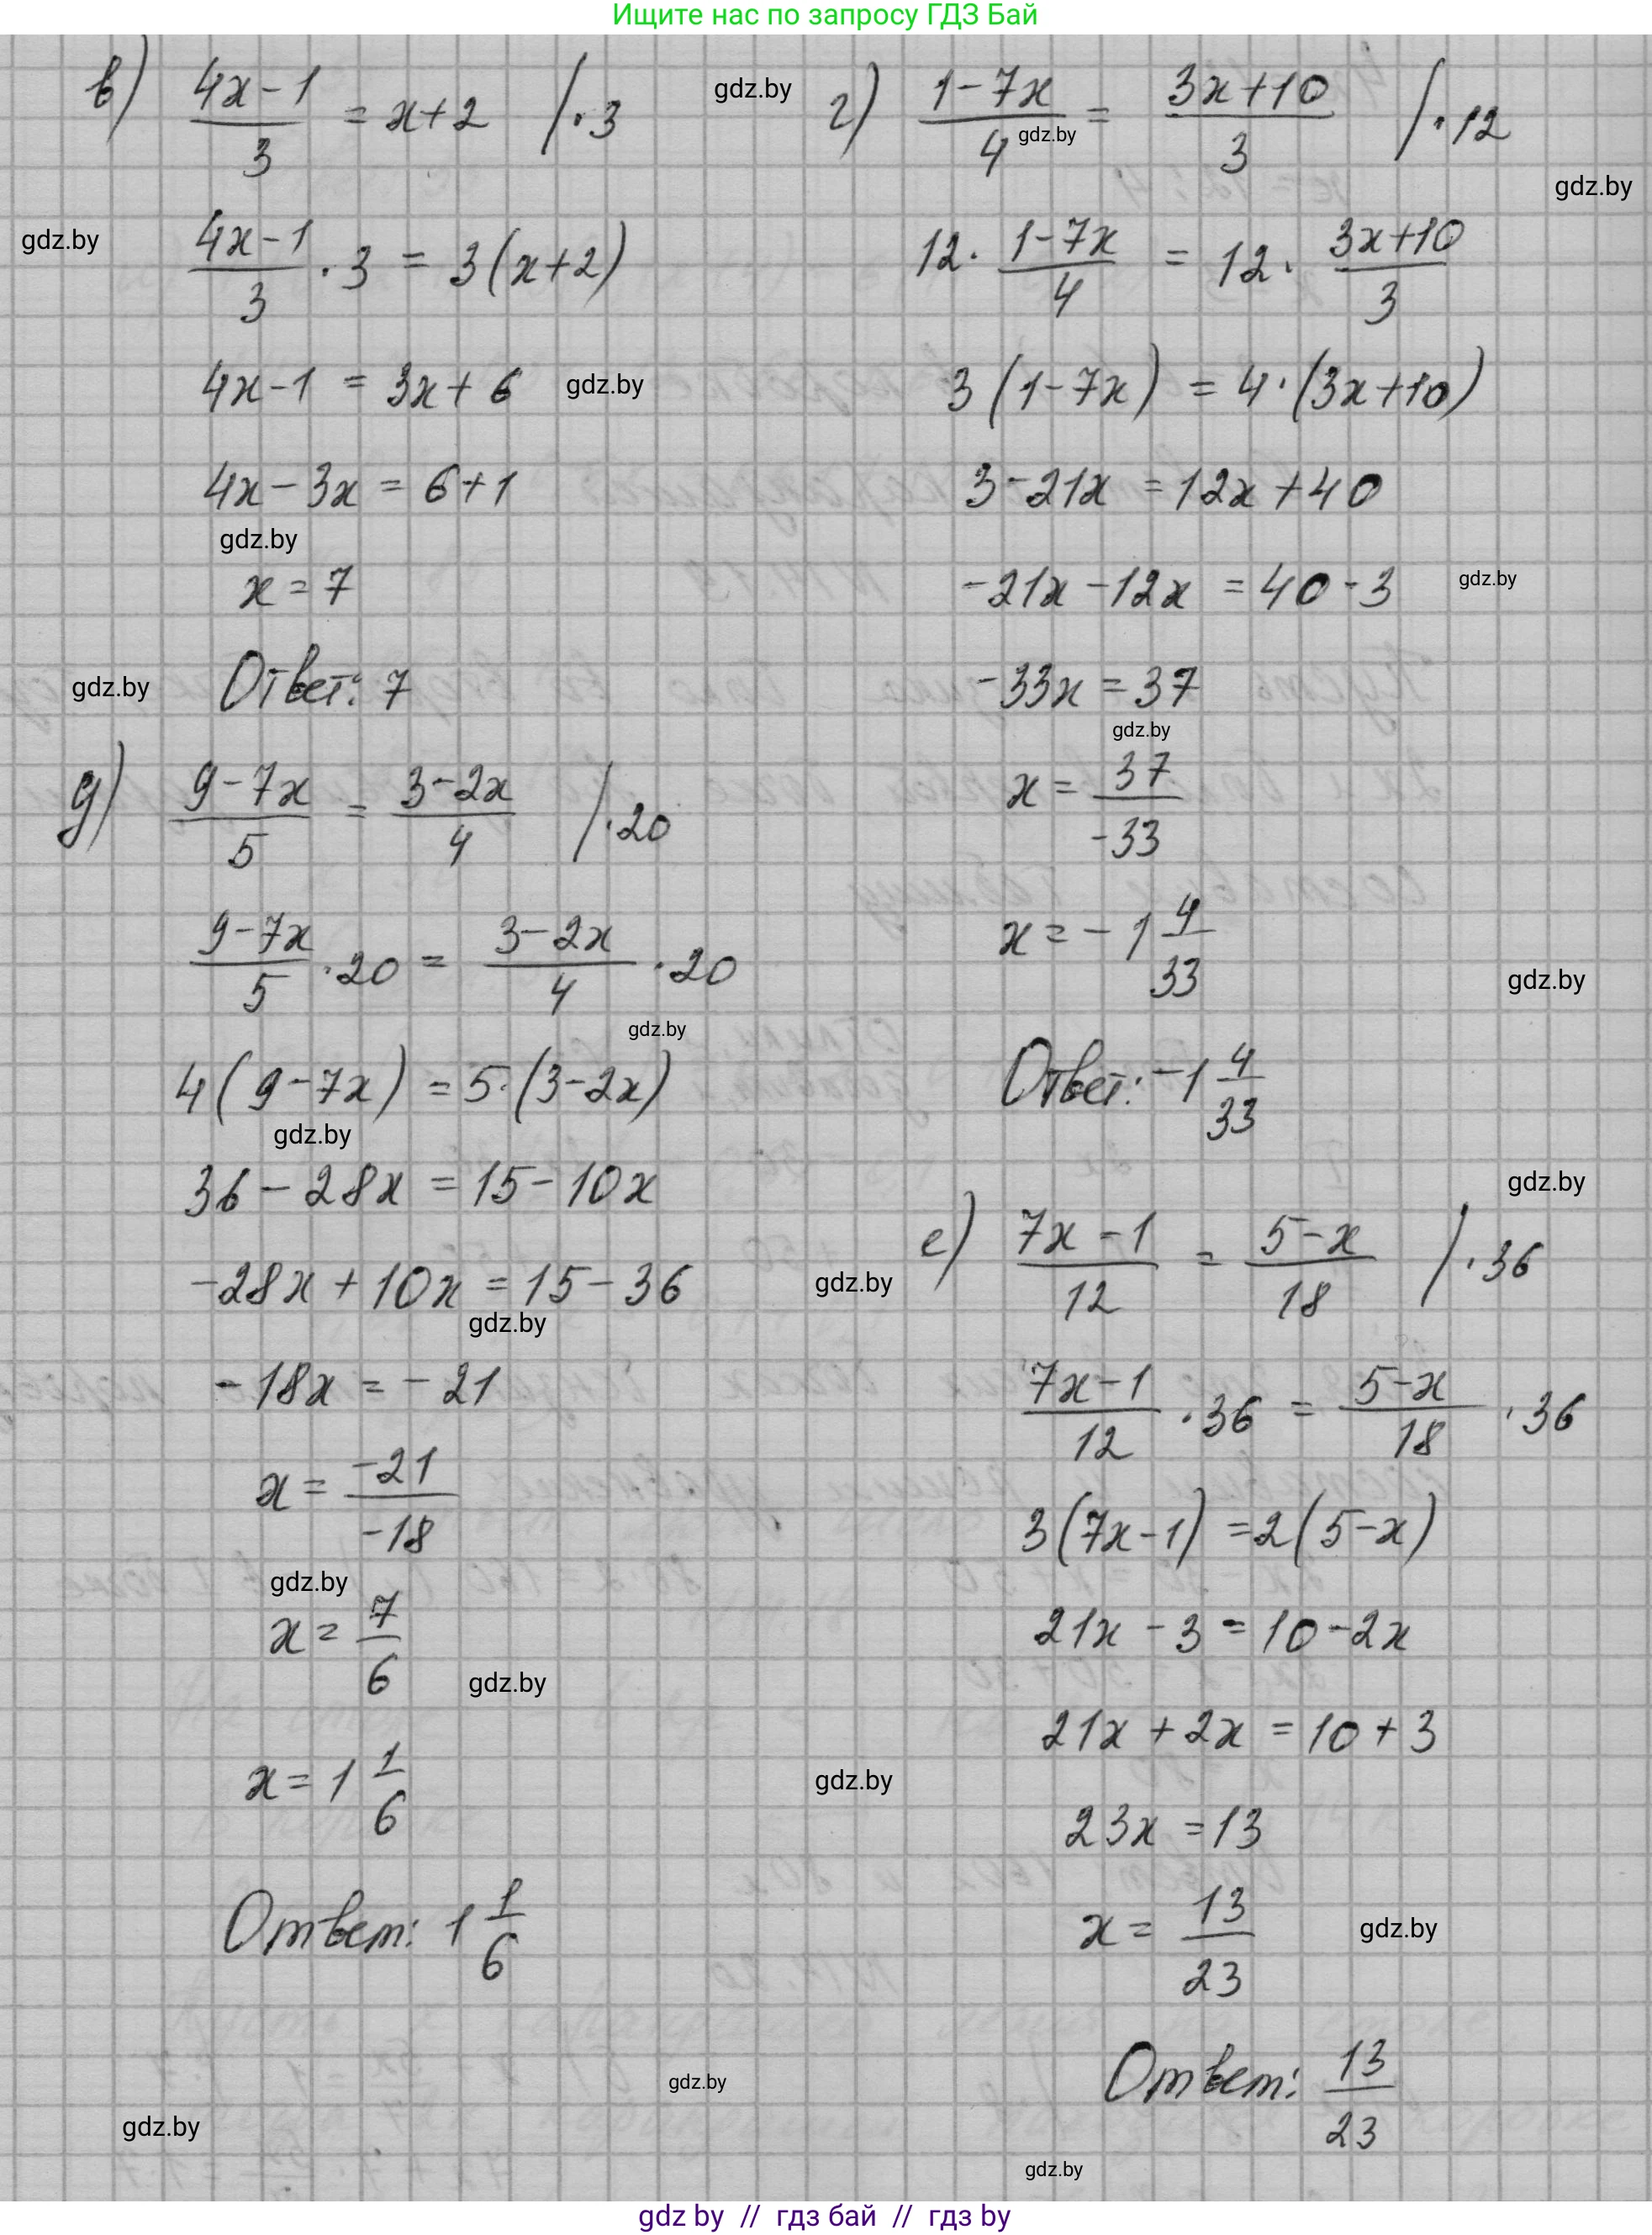 Ищите нас по запросу ГДЗ Бай
в) (4x-1)/3 = x+2 /·3
gdz.by
gdz.by
(4x-1)/3 · 3 = 3(x+2)
4x-1 = 3x+6
gdz.by
4x-3x = 6+1
gdz.by
x=7
gdz.by
Ответ: 7
г) (1-7x)/4 = (3x+10)/3 /·12
gdz.by
gdz.by
12· (1-7x)/4 = 12· (3x+10)/3
3(1-7x) = 4·(3x+10)
3-21x = 12x+40
-21x-12x = 40-3
gdz.by
-33x = 37
gdz.by
x= 37/-33
x= -1 4/33
gdz.by
Ответ: -1 4/33
gdz.by
д) (9-7x)/5 = (3-2x)/4 /·20
(9-7x)/5 ·20 = (3-2x)/4 ·20
gdz.by
4(9-7x) = 5·(3-2x)
gdz.by
36-28x = 15-10x
-28x+10x = 15-36
gdz.by
gdz.by
-18x = -21
x= -21/-18
gdz.by
x= 7/6
gdz.by
x= 1 1/6
gdz.by
Ответ: 1 1/6
е) (7x-1)/12 = (5-x)/18 /·36
(7x-1)/12 ·36 = (5-x)/18 ·36
3(7x-1) = 2(5-x)
21x-3 = 10-2x
21x+2x = 10+3
23x = 13
x= 13/23
gdz.by
Ответ: 13/23
gdz.by
gdz.by
gdz.by
gdz by // гдз бай // гдз by